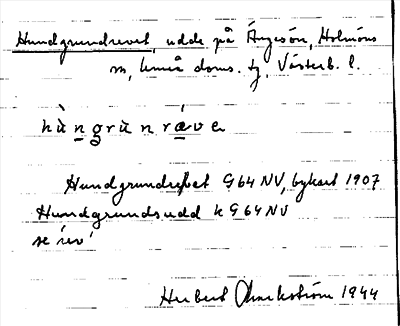 Hundgrundrevet, udde på Ängesön, Holmöns
sn, Umeå doms. tg, Västerb. l.
hùngrùnrǽve
Hundgrundrefvet G64NV, bykart 1907
Hundgrundsudd k G64NV
se rev
Herbert 1944